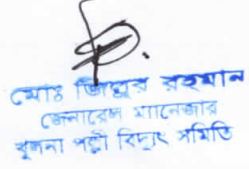 মোঃ জিল্লুর রহমান
জেনারেল ম্যানেজার
খুলনা পল্লী বিদ্যুৎ সমিতি